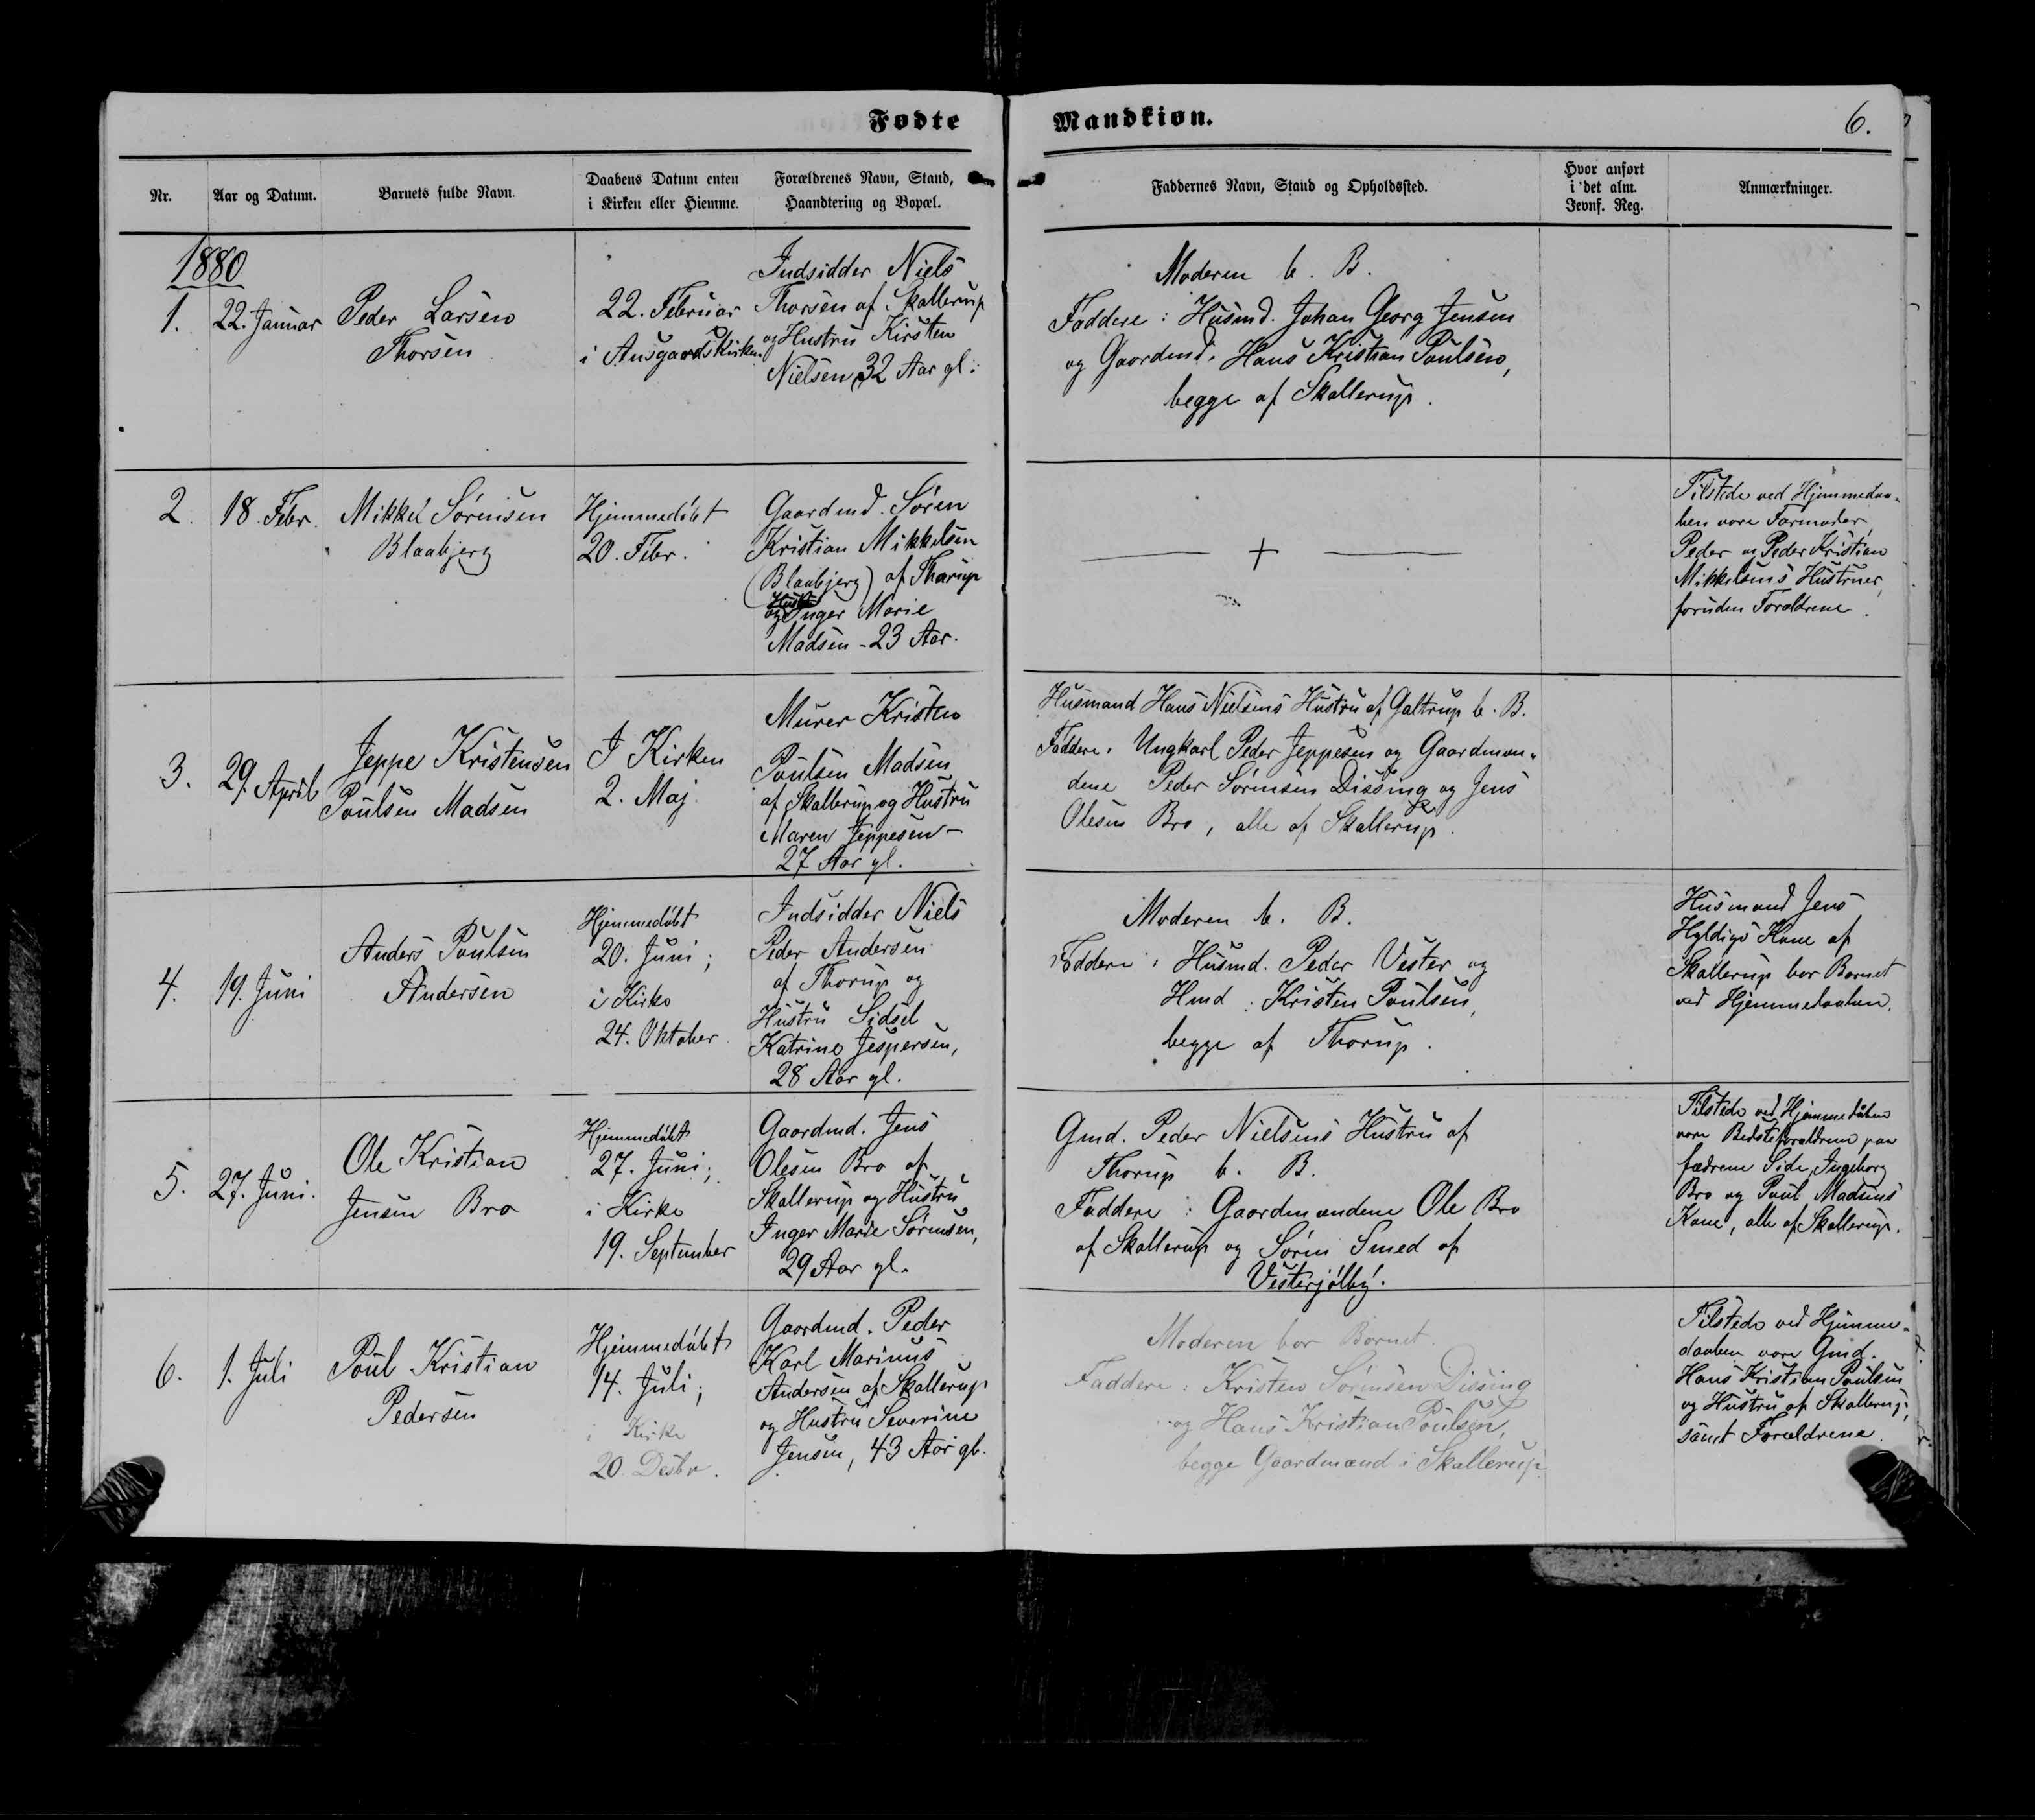 Fødte
Nr.
Aar og Datum.
Barnets fulde Navn.
Daabens Datum enten
i Kirken eller Hiemme.
Forældrenes Navn, Stand,
Haandtering og Bopæl.
1880
1.
22. Januar
Peder Larsen
Thorsen
22. Februar
i Ansgaards Kirken
Indsidder Niels
Thorsen af Skallerup
og Hustru Kirsten
Nielsen, 32 Aar gl.
2.
18. Febr.
Mikkel Sørensen
Blaabjerg
Hjemmedøbt
20. Febr.
Gaardmd. Søren
Kristian Mikkelsen
(Blaabjerg) af Thorup
Hustr
og Inger Marie
Madsen - 23 Aar.
3.
29. April
Jeppe Kristensen
Poulsen Madsen
I Kirken
2. Maj
Murer Kristen
Poulsen Madsen
af Skallerup og Hustru
Maren Jeppesen -
27 Aar gl.
4.
19. Juni
Anders Poulsen
Andersen
Hjemmedøbt
20. Juni;
i Kirke
24. Oktober
Indsidder Niels
Peder Andersen
af Thorup og
Hustru Sidsel
Katrine Jespersen,
28 Aar gl.
5.
27. Juni.
Ole Kristian
Jensen Bro
Hjemmedøbt
27. Juni;
i Kirke
19. September
Gaardmd. Jens
Olesen Bro af
Skallerup og Hustru
Inger Marie Sørensen,
29 Aar gl.
6.
1. Juli
Poul Kristian
Pedersen
Hjemmedøbt
14. Juli;
i Kirke
20. Desbr.
Gaardmd. Peder
Karl Marinus
Andersen af Skallerup
og Hustru Severine
Jensen, 43 Aar gl.
Mandkiøn.
6.
Faddernes Navn, Stand og Opholdssted.
Hvor anført
i det alm.
Jevnf. Reg.
Anmærkninger.
Moderen b. B.
Faddere: Husmd. Johan Georg Jensen
og Gaardmd. Hans Kristian Poulsen,
begge af Skallerup.
+
Tilstede ved Hjemmedaa-
ben vare Farmoder,
Peder og Peder Kristian
Mikkelsens Hustruer,
foruden Forældrene.
Husmand Hans Nielsens Hustru af Galtrup b. B.
Faddere: Ungkarl Peder Jeppesen og Gaardmæn-
dene Peder Sørensen Dissing og Jens
Olesen Bro, alle af Skallerup.
Moderen b. B.
Faddere: Husmd. Peder Vester og
Hmd. Kristen Poulsen,
begge af Thorup.
Husmand Jens
Hyldigs Kone af
Skallerup bar Barnet
ved Hjemmedaaben.
Gmd. Peder Nielsens Hustru af
Thorup b. B.
Faddere: Gaardmændene Ole Bro
af Skallerup og Søren Smed af
Vesterjølby.
Tilstede ved Hjemmedåben
vare Bedsteforældrene paa
fædrene Side, Ingeborg
Bro og Poul Madsens
Kone, alle af Skallerup.
Moderen bar Barnet.
Faddere: Kristen Sørensen Dissing
og Hans Kristian Poulsen,
begge Gaardmænd i Skallerup
Tilstede ved Hjemme-
daaben vare Gmd.
Hans Kristian Poulsen
og Hustru af Skallerup,
samt Forældrene.